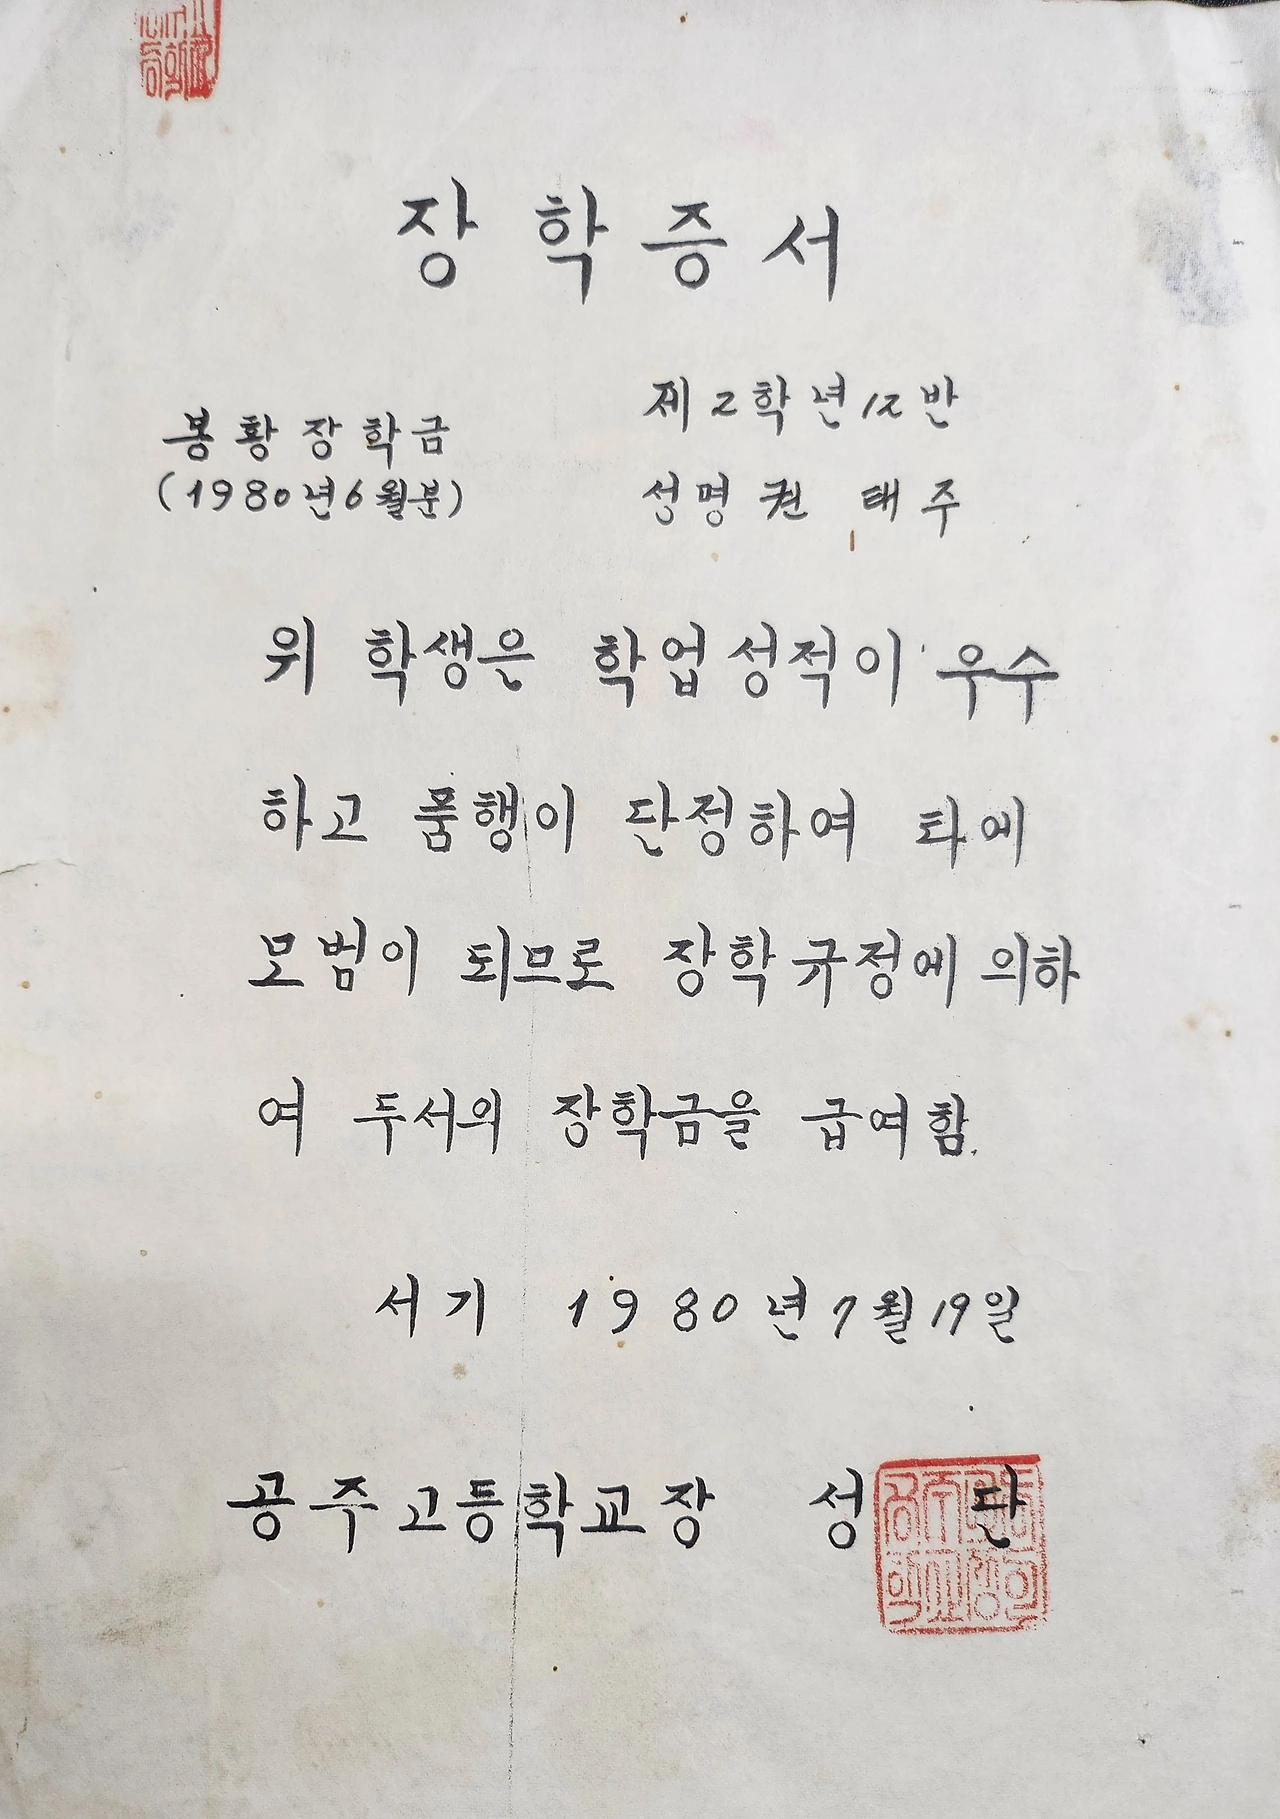 장학증서
제2학년12반
봉황장학금
(1980년6월분)
성명 권 태주
위 학생은 학업성적이 우수
하고 품행이 단정하여 타에
모범이 되므로 장학규정에 의하
여 두서의 장학금을 급여함.
서기 1980년7월19일
공주고등학교장 성 단